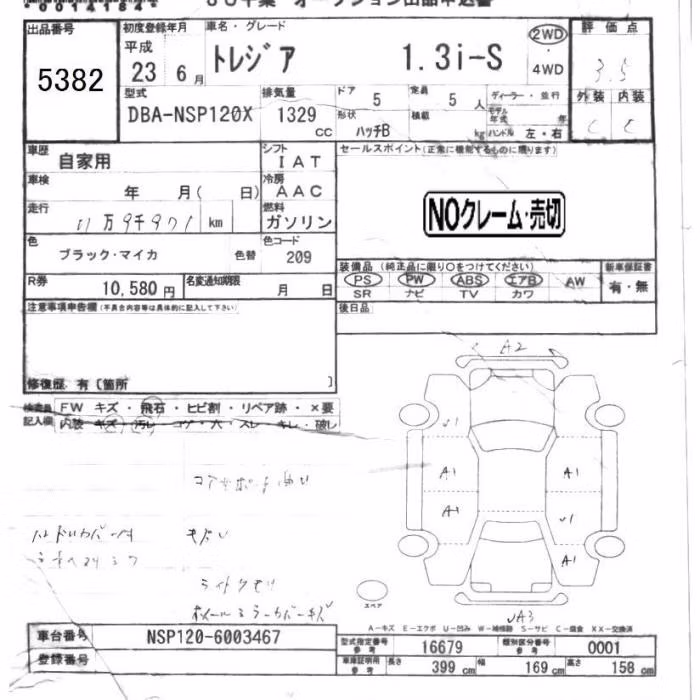 出品番号
5382
初度登録年月
平成
23 6月
車名・グレード
トレジア 1.3i-S
2WD
・
4WD
評価点
3.5
外装 内装
C C
型式
DBA-NSP120X
排気量
1329 cc
ドア 5
定員 5 人
形状 ハッチB
積載 kg
ディーラー・並行
モデル年式 年
ハンドル 左・右
車歴 自家用
シフト IAT
車検 年 月( 日)
冷房 AAC
走行 11万9千971 km
燃料 ガソリン
色 ブラック・マイカ 色替
色コード 209
R券 10,580 円
名変通知期限 月 日
セールスポイント(正常に機能するものに限ります)
NOクレーム・売切
装備品 (純正品に限り○をつけてください)
PS PW ABS エアB AW
SR ナビ TV カワ
新車保証書
有・無
後日品
注意事項申告欄(不具合内容等は具体的に記入して下さい)
修復歴 有〔箇所 〕
検査員記入欄
FW キズ・飛石・ヒビ割・リペア跡・×要
内装 キズ・汚レ・コゲ・穴・スレ・キレ・破レ
A2
A1
A1
A1
A1
A3
スペア
A-キズ E-エクボ U-凹み W-補修跡 S-サビ C-腐食 XX-交換済
車台番号 NSP120-6003467
登録番号
型式指定番号 参考 16679
類別区分番号 参考 0001
車庫証明用 参考 長さ 399 cm 幅 169 cm 高さ 158 cm